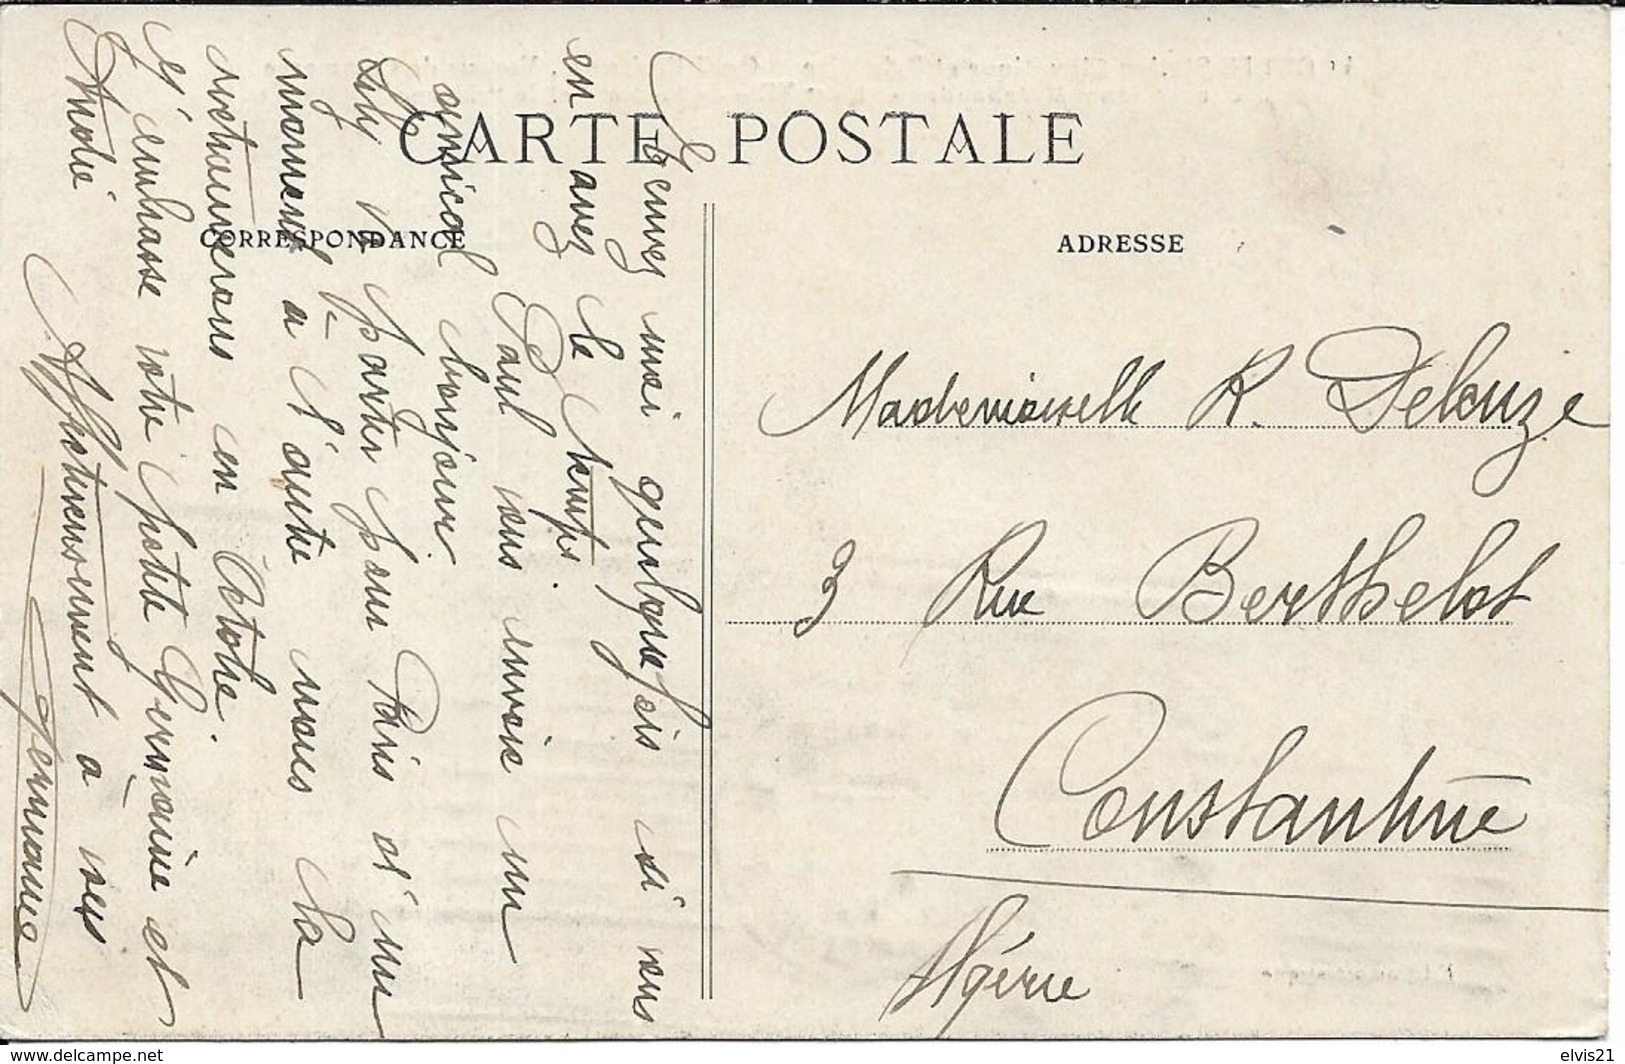 CARTE POSTALE
CORRESPONDANCE
ADRESSE
Mademoiselle R. Deleuze
3 Rue Berthelot
Constantine
Algérie
moi quelquefois si vous
en avez le temps.
Paul vous envoie un
amical bonjour
Lily va partir pour Paris d'un
moment à l'autre nous la
retrouverons en Octobre.
J'embrasse votre petite Germaine et
Affectueusement à vous
Germaine
delcampe.net
elvis21